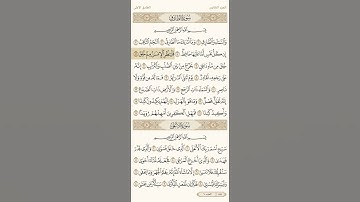 الجزء الثلاثون
سُورَةُ الطَّارِقِ
بِسْمِ اللَّهِ الرَّحْمَٰنِ الرَّحِيمِ
وَالسَّمَاءِ وَالطَّارِقِ ١ وَمَا أَدْرَاكَ مَا الطَّارِقُ ٢ النَّجْمُ الثَّاقِبُ ٣
إِن كُلُّ نَفْسٍ لَّمَّا عَلَيْهَا حَافِظٌ ٤ فَلْيَنظُرِ الْإِنسَانُ مِمَّ خُلِقَ ٥
خُلِقَ مِن مَّاءٍ دَافِقٍ ٦ يَخْرُجُ مِن بَيْنِ الصُّلْبِ وَالتَّرَائِبِ ٧
إِنَّهُ عَلَىٰ رَجْعِهِ لَقَادِرٌ ٨ يَوْمَ تُبْلَى السَّرَائِرُ ٩ فَمَا لَهُ مِن قُوَّةٍ وَلَا
نَاصِرٍ ١٠ وَالسَّمَاءِ ذَاتِ الرَّجْعِ ١١ وَالْأَرْضِ ذَاتِ الصَّدْعِ ١٢
إِنَّهُ لَقَوْلٌ فَصْلٌ ١٣ وَمَا هُوَ بِالْهَزْلِ ١٤ إِنَّهُمْ يَكِيدُونَ كَيْدًا ١٥
وَأَكِيدُ كَيْدًا ١٦ فَمَهِّلِ الْكَافِرِينَ أَمْهِلْهُمْ رُوَيْدًا ١٧
سُورَةُ الْأَعْلَىٰ
بِسْمِ اللَّهِ الرَّحْمَٰنِ الرَّحِيمِ
سَبِّحِ اسْمَ رَبِّكَ الْأَعْلَى ١ الَّذِي خَلَقَ فَسَوَّىٰ ٢ وَالَّذِي قَدَّرَ
فَهَدَىٰ ٣ وَالَّذِي أَخْرَجَ الْمَرْعَىٰ ٤ فَجَعَلَهُ غُثَاءً أَحْوَىٰ ٥
سَنُقْرِئُكَ فَلَا تَنسَىٰ ٦ إِلَّا مَا شَاءَ اللَّهُ إِنَّهُ يَعْلَمُ الْجَهْرَ وَمَا يَخْفَىٰ ٧
وَنُيَسِّرُكَ لِلْيُسْرَىٰ ٨ فَذَكِّرْ إِن نَّفَعَتِ الذِّكْرَىٰ ٩ سَيَذَّكَّرُ مَن يَخْشَىٰ ١٠